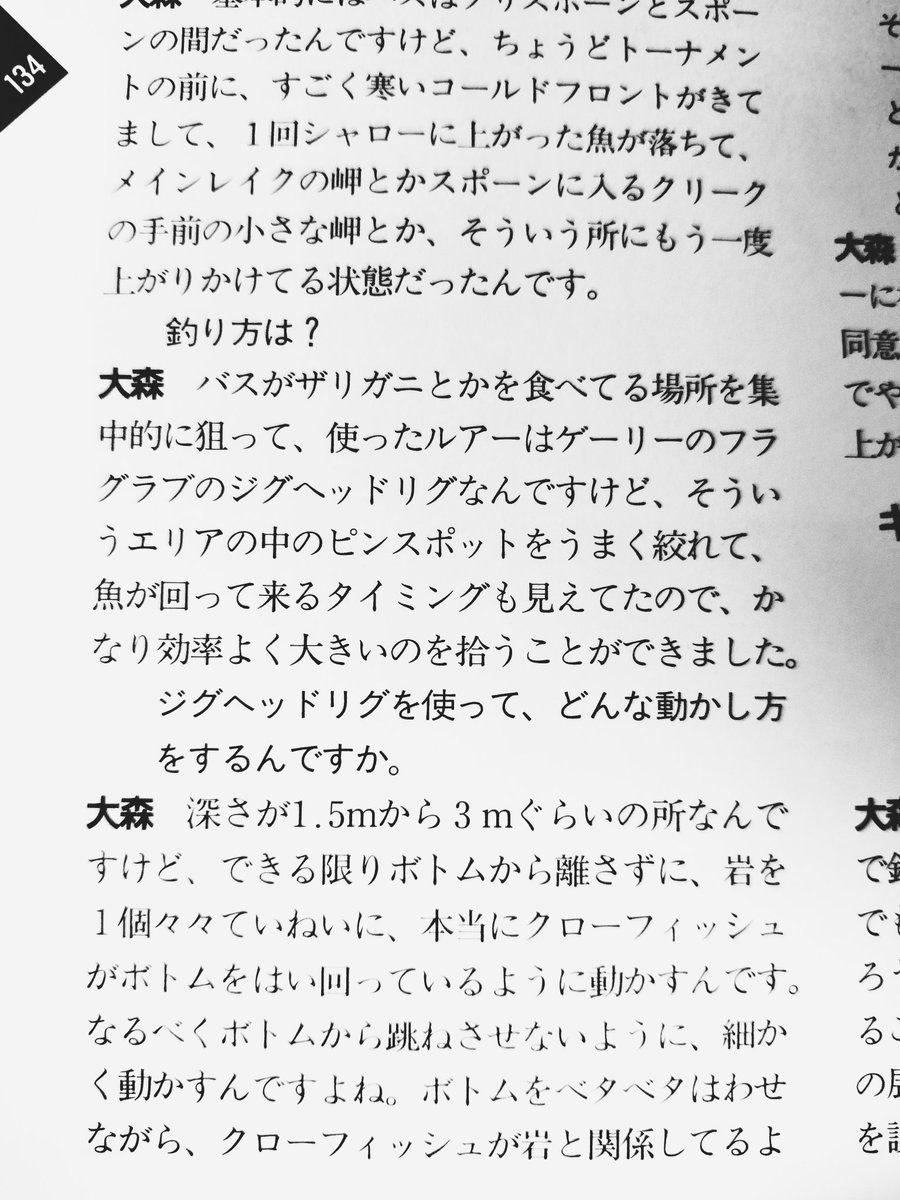 134
大森　基本的にはバスはプリスポーンとスポー
ンの間だったんですけど、ちょうどトーナメン
トの前に、すごく寒いコールドフロントがきて
まして、１回シャローに上がった魚が落ちて、
メインレイクの岬とかスポーンに入るクリーク
の手前の小さな岬とか、そういう所にもう一度
上がりかけてる状態だったんです。
釣り方は？
大森　バスがザリガニとかを食べてる場所を集
中的に狙って、使ったルアーはゲーリーのフラ
グラブのジグヘッドリグなんですけど、そうい
うエリアの中のピンスポットをうまく絞れて、
魚が回って来るタイミングも見えてたので、か
なり効率よく大きいのを拾うことができました。
ジグヘッドリグを使って、どんな動かし方
をするんですか。
大森　深さが1.5mから３mぐらいの所なんで
すけど、できる限りボトムから離さずに、岩を
１個々々ていねいに、本当にクローフィッシュ
がボトムをはい回っているように動かすんです。
なるべくボトムから跳ねさせないように、細か
く動かすんですよね。ボトムをベタベタはわせ
ながら、クローフィッシュが岩と関係してるよ
そ
ー
と
か
と
大森
ーに
同意
でや
上が
キ
大森
で
でも
ろう
るこ
の
を